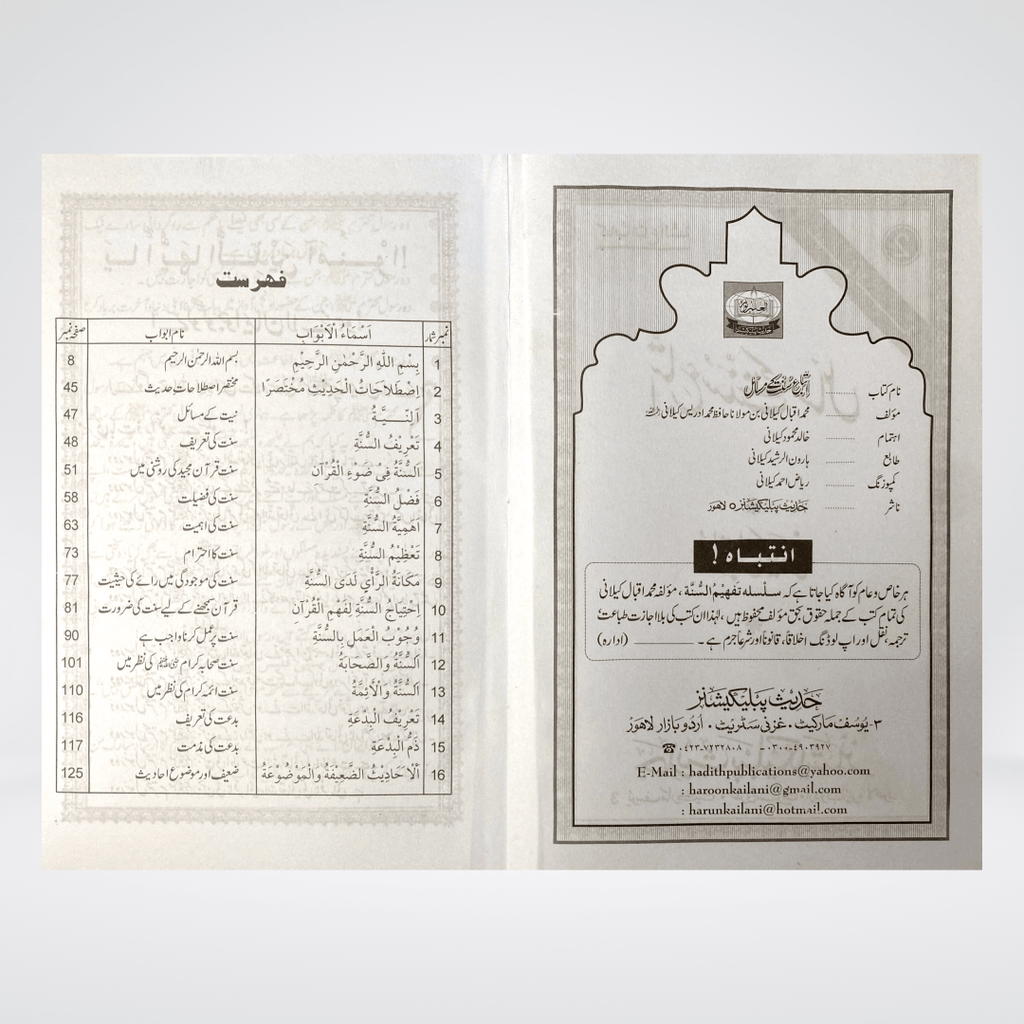 نام کتاب ............ اتباع سنت کے مسائل
مؤلف ............ محمد اقبال کیلانی بن مولانا حافظ محمد ادریس کیلانی
اہتمام ............ خالد محمود کیلانی
طابع ............ ہارون الرشید کیلانی
کمپوزنگ ............ ریاض احمد کیلانی
ناشر ............ حدیث پبلیکیشنز لاہور
انتباہ !
ہر خاص و عام کو آگاہ کیا جاتا ہے کہ سلسلہ تفہیم السنۃ ، مؤلفہ محمد اقبال کیلانی
کی تمام کتب کے جملہ حقوق بحق مؤلف محفوظ ہیں ، لہٰذا ان کتب کی بلا اجازت طباعت ،
ترجمہ، نقل اور اپ لوڈنگ اخلاقاً، قانوناً اور شرعاً جرم ہے ۔ ــــــــــــ (ادارہ)
حدیث پبلیکیشنز
۳- یوسف مارکیٹ ۔ غزنی سٹریٹ ۔ اردو بازار لاہور
☎ ۰۴۲۳-۷۲۳۲۸۰۸ – ۰۳۰۰-۴۹۰۳۹۲۷
E-Mail : hadithpublications@yahoo.com
: haroonkailani@gmail.com
: harunkailani@hotmail.com
فہرست
نمبر شمار اَسْمَاءُ الْاَبْوَاب نام ابواب صفحہ نمبر
1 بِسْمِ اللّٰهِ الرَّحْمٰنِ الرَّحِيْمِ بسم اللہ الرحمٰن الرحیم 8
2 اِصْطِلَاحَاتُ الْحَدِيْثِ مُخْتَصَرًا مختصر اصطلاحات حدیث 45
3 اَلنِّـيَّـةُ نیت کے مسائل 47
4 تَعْرِيْفُ السُّنَّةِ سنت کی تعریف 48
5 اَلسُّنَّةُ فِيْ ضَوْءِ الْقُرْآنِ سنت قرآن مجید کی روشنی میں 51
6 فَضْلُ السُّنَّةِ سنت کی فضیلت 58
7 اَهَمِيَّةُ السُّنَّةِ سنت کی اہمیت 63
8 تَعْظِيْمُ السُّنَّةِ سنت کا احترام 73
9 مَكَانَةُ الرَّأْيِ لَدَى السُّنَّةِ سنت کی موجودگی میں رائے کی حیثیت 77
10 اِحْتِيَاجُ السُّنَّةِ لِفَهْمِ الْقُرْآنِ قرآن سمجھنے کے لیے سنت کی ضرورت 81
11 وُجُوْبُ الْعَمَلِ بِالسُّنَّةِ سنت پر عمل کرنا واجب ہے 90
12 اَلسُّنَّةُ وَالصَّحَابَةُ سنت صحابہ کرام کی نظر میں 101
13 اَلسُّنَّةُ وَالْاَئِمَّةُ سنت ائمہ کرام کی نظر میں 110
14 تَعْرِيْفُ الْبِدْعَةِ بدعت کی تعریف 116
15 ذَمُّ الْبِدْعَةِ بدعت کی مذمت 117
16 اَلْاَحَادِيْثُ الضَّعِيْفَةُ وَالْمَوْضُوْعَةُ ضعیف اور موضوع احادیث 125